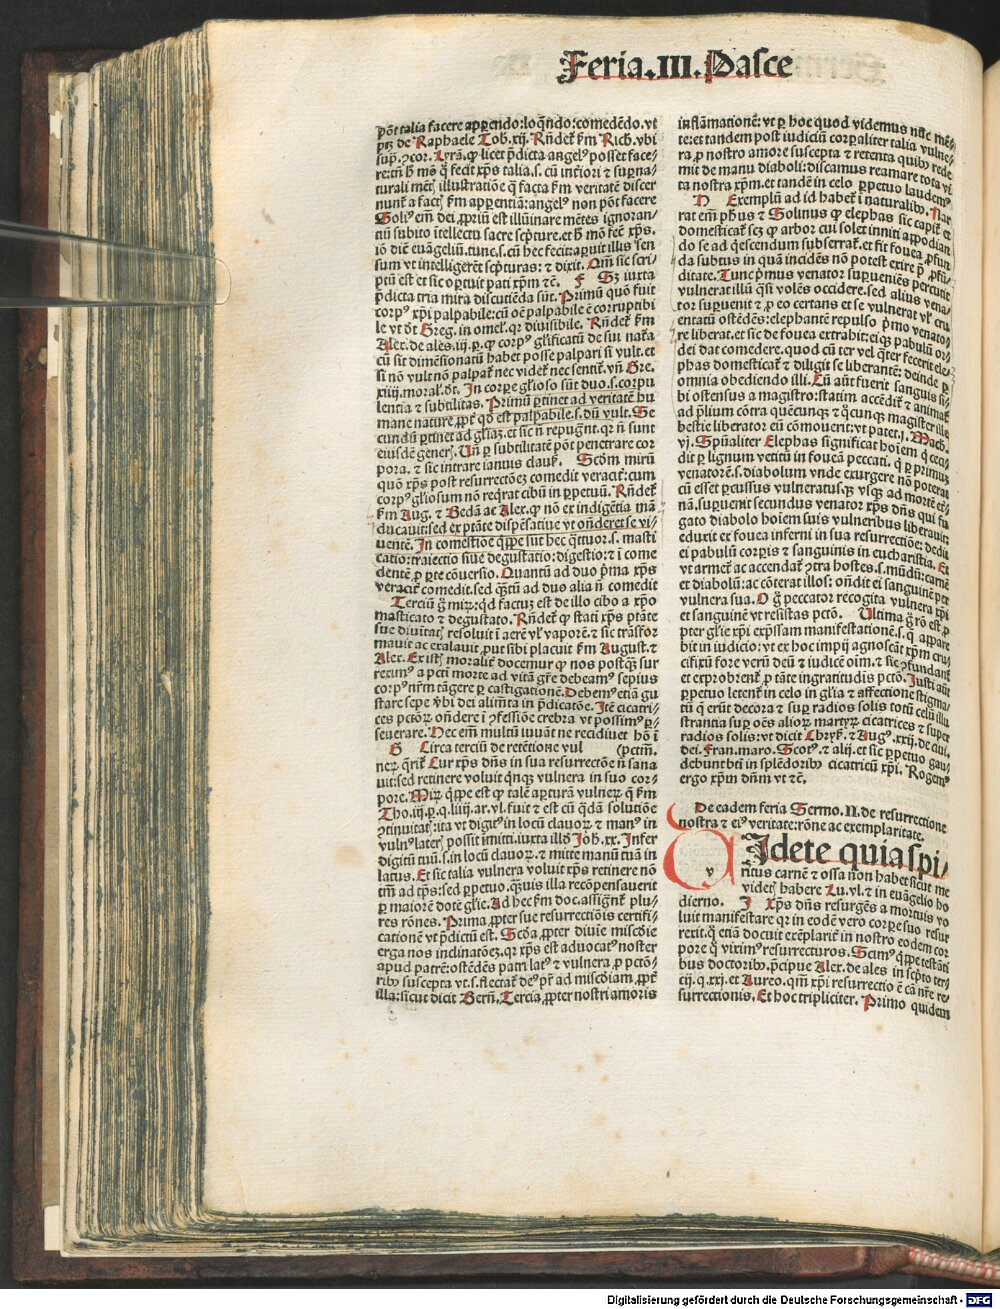 Feria.III.Pasce
põt talia facere apparendo:loqn̄do:comedēdo.vt
ptꝫ de Raphaele Tob.xij. Rn̄det ẜm Rich. vbi
sup. ꝯcor. Lyrā. ꝙ licet p̄dicta angelꝰ posset face-
re:tn̄ hͦ mō q̄ fecit xp̄s talia.s. cū inťiori ⁊ sup̄na-
turali mētꝭ illustratiōe q̄ facta ẜm veritatē discer
nunť a factꝭ ẜm apparentiā:angelꝰ non põt facere
Soliꝰ em̄ dei ꝓpriū est illūinare mētes ignoran-
tiū subito ītellectu sacre scpture.et hͦ mō fec̄ xp̄s.
iō dic̄ euāgeliū.tunc.s.cū hec fecit:aꝑuit illis sen
sum vt intelligerēt scpturas: ⁊ dixit. Qm̄ sic scri-
ptū est et sic oꝑtuit pati xpm̄ ⁊c̄. F Sꝫ iuxta
p̄dicta tria mira discutiēda sūt. Primū quō fuit
corpꝰ xp̄i palpabile:cū oē palpabile ē corruptibi
le vt dť Greg. in omel. qꝛ diuisibile. Rn̄det ẜm
Alex.de ales.iij.ꝑ. ꝙ corpꝰ glificatū de sui naťa
cū sit dimēsionatū habet posse palpari si vult. et
si nō vult nō palpať nec videť nec sentiť. vn̄ Gre.
xiiij.moral.dt. In corpe glioso sūt duo.s.corpu
lentia ⁊ subtilitas. Primū ꝑtinet ad veritatē hu
mane nature ꝓpť qd est palpabile.s.dū vult. Se
cundū ꝑtinet ad gliaꝫ. et sic n̄ repugnť. qꝛ n̄ sunt
eiusdē generꝭ. Un̄ ꝑ subtilitatē põt penetrare cor
pora. ⁊ sic intrare ianuis clausꝭ. Scd̄m mirū
quō xp̄s post resurrectōeꝫ comedit veraciť:cum
corpꝰ gliosum nō reqrat cibū in ꝑpetuū. Rn̄det
ẜm Aug. ⁊ Bedā ac Alex. ꝙ nō ex indigētia mā
ducauit:sed ex ptāte dispēsatiue vt onderet se vi-
uentē. In comestiōe qppe sūt hec qttuor.s. masti
catio:traiectio siue degustatio:digestio:⁊ ī come
dentē ꝓ ꝑte cōuersio. Quantū ad duo pma xp̄s
veraciť comedit.sed qtū ad duo alia n̄ comedit
Terciū ḡ miꝝ: qd factuꝫ est de illo cibo a xp̄o
masticato ⁊ degustato. Rn̄deť ꝙ stati xp̄s ptāte
sue diuitatꝭ resoluit ī aerē vl vaporē. ⁊ sic trāsfor
mauit ac exalauit ꝓut sibi placuit ẜm August.⁊
Alex. Ex istꝭ moraliť docemur ꝙ nos postqꝫ sur
rexim a pcti morte ad vitā gr̄e debeamꝰ sepius
corpꝰ nr̄m tāgere ꝑ castigationē. Debemꝰ etiā gu
stare sepe vbi dei alim̄ta in p̄dicatōe. Itē cicatri-
ces pctōꝝ on̄dere ī ꝯfessiōe crebra vt possimꝰ ꝑ-
seuerare. Hec em̄ multū iuuāt ne recidiuet hō ī
G Circa terciū de retētione vul (pctm̄.
neꝝ qriť Cur xp̄s dn̄s in sua resurrectōe n̄ sana
uit:sed retinere voluit qnqꝫ vulnera in suo cor-
pore. Miꝝ qppe est ꝙ talē aꝑturā vulneꝝ q̄ ẜm
Tho.iij.ꝑ.q.liiij.ar.vl.fuit ⁊ est cū qdā solutiōe
ꝯtinuitatꝭ:ita vt digitꝰ in locū clauoꝝ ⁊ manꝰ in
vulnꝰ laterꝭ possit imitti.iuxta illd Joh.xx. Infer
digitū tuū.s.in locū clauoꝝ. ⁊ mitte manū tuā in
latus. Et sic talia vulnera voluit xp̄s retinere nō
tm̄ ad tp̄s:sed ꝑpetuo. qꝫuis illa recōpensauerit
ꝑ maiorē dotē glie. Ad hec ẜm doc.assignť plu-
res rōnes. Prima ꝓpter sue resurrectiōis certifi-
cationē vt p̄dictū est. Scda ꝓpter diuine miscdie
erga nos inclinatōeꝫ.qꝛ xp̄s est aduocatꝰ noster
apud patrē:ostēdēs patri latꝰ ⁊ vulnera ꝓ pctō-
ribꝰ suscepta vt.s.flectať deꝰ pr̄ ad miscdiam ꝓpť
illa:sicut dicit Bern. Tercia ꝓpter nostri amoris
inflāmationē: vt ꝑ hoc quod videmus nūc mē-
te:et tandem post iudiciū corꝑaliter talia vulne-
ra ꝓ nostro amore suscepta ⁊ retenta quibꝰ rede
mit de manu diaboli:discamus reamare tota vi
ta nostra xpm̄.et tandē in celo ꝑpetuo laudemꝰ
H Exemplū ad id habeť ī naturalibꝰ. Nar
rat em̄ phus ⁊ Solinus ꝙ elephas sic capiť et
domesticať scꝫ ꝙ arboꝛ cui solet inniti appodian
do se ad qescendum subserrať.et fit fouea ꝓfun
da subtus in quā incidēs nō potest exire ꝓ ꝓfū-
ditate. Tunc pmus venator suꝑueniēs percutit
vulnerat illū qsi volēs occidere.sed alius vena-
tor suꝑuenit ⁊ ꝓ eo certans et se vulnerat vl cru
entatū ostēdēs:elephantē repulso pmo venato-
re liberat.et sic de fouea extrahit:eiqꝫ pabulū or-
dei dat comedere.quod cū ter vel qter fecerit ele-
phas domesticať ⁊ diligit se liberantē: deinde ꝑ
omnia obediendo illi. Cū aūt fuerit sanguis si-
bi ostensus a magistro:statim accēdit ⁊ animať
ad plium cōtra quēcunqꝫ ⁊ qcunqꝫ magister ille
bestie liberator eū cōmouerit:vt patet.j. Mach.
vj. Spūaliter Elephas significat hoiem q̄ ceci
dit ꝑ lignum vetitū in foueā peccati. q̄ ꝑ primus
venatorē.s.diabolum vnde exurgere nō poterat
cū esset percussus vulneratusqꝫ vsqꝫ ad mortē eť-
nā.suꝑuenit secundus venator xp̄s dn̄s qui fu
gato diabolo hoiem suis vulneribus liberauit:
eduxit et fouea inferni in sua resurrectiōe: dedit
ei pabulū corpis ⁊ sanguinis in eucharistia. Et
vt armeť ac accendať ꝯtra hostes.s.mūdū: carnē
et diabolū:ac cōterat illos: on̄dit ei sanguinē per
vulnera sua. O ḡ peccator recogita vulnera xp̄i
et sanguinē vt resistas pctō. Ultima ḡ rō est ꝓ
pter glie xp̄i exp̄ssam manifestationē.s.q̄ appare
bit in iudicio: vt ex hoc impij agnoscāt xpm̄ cru
cifixū fore verū deū ⁊ iudicē oim.⁊ sic ꝯfundanť
et exprobrenť ꝓ tāte ingratitudis pctō. Justi aūt
ꝑpetuo letenť in celo in glia ⁊ affectione stigma
tū q̄ erūt decora ⁊ suꝑ radios solis totū celū illu
strantia suꝑ oēs alioꝝ martyꝝ cicatrices ⁊ super
radios solis:vt dicit Chryẜ. ⁊ Augꝰ.xxij.de ciui.
dei. Fran.maro. Scotꝰ.⁊ alij.et sic ꝑpetuo gau-
debunt bti in splēdoribꝰ cicatricū xp̄i. Rogemꝰ
ergo xpm̄ dn̄m vt ⁊c̄.
De eadem feria Sermo.II.de resurrectione
nostra ⁊ eiꝰ veritate:rōne ac exemplaritate.
v Idete quia spi/
ritus carnē ⁊ ossa non habet sicut me
videtꝭ habere Lu.vl.⁊ in euāgelio ho
dierno. J Xp̄s dn̄s resurgēs a mortuis vo
luit manifestare qꝛ in eodē vero corpe suo resur
rexit.q̄ etiā docuit exēplariť in nostro eodem cor
pore q̄ viximꝰ resurrecturos. Scimꝰ qppe testāti
bus doctoribꝰ.pcipue Alex.de ales in scpto ter-
cij.q.xxj.et Aureo.qm̄ xp̄i resurrectio ē cā nr̄e re-
surrectionis. Et hoc tripliciter. Primo quidem
Digitalisierung gefördert durch die Deutsche Forschungsgemeinschaft - DFG